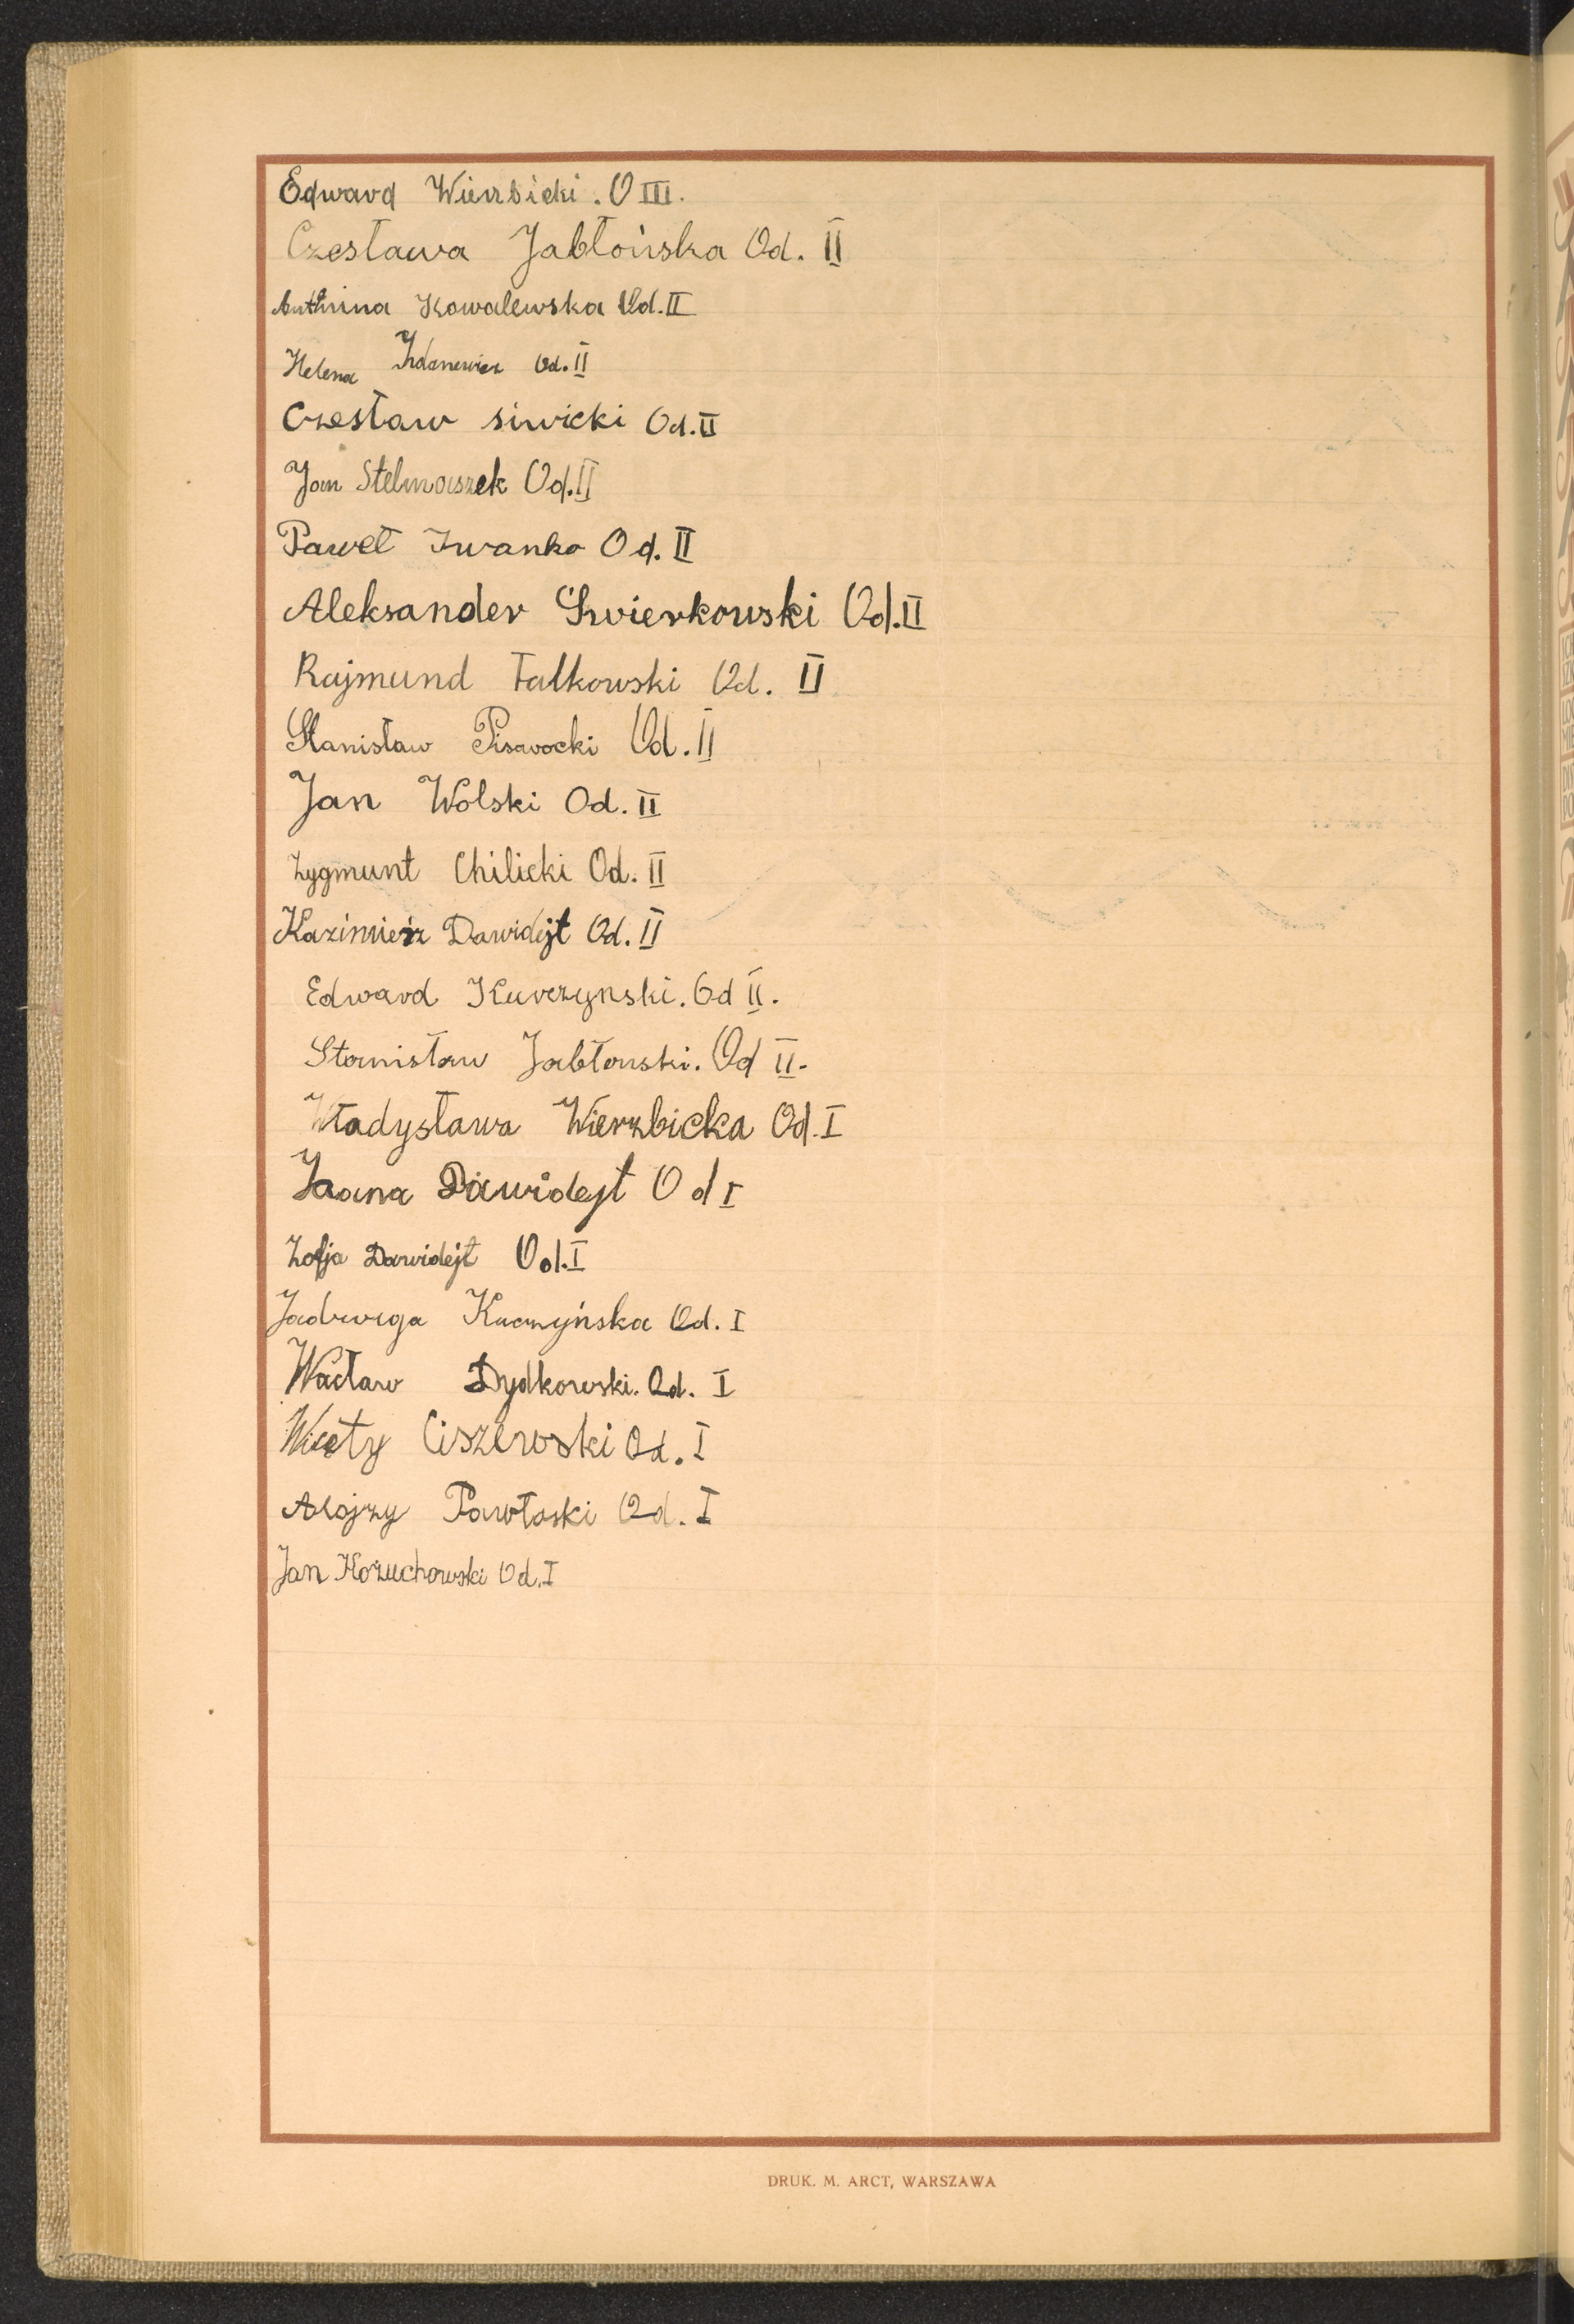 Edward Wierzbicki. O III.
Czesława Jabłońska Od. II
Kowalewska Od. II
Helena Żdanewicz Od. II
Czesław siwicki Od. II
Jan Stelmaszek Od. II
Paweł Iwanko Od. II
Aleksander Świerkowski Od. II
Rajmund Falkowski Od. II
Stanisław Pisawocki Od. II
Jan Wolski Od. II
Zygmunt Chilicki Od. II
Kazimierz Dawidejt Od. II
Edward Kurczynski. Od II.
Stanisław Jabłonski. Od II.
Władysława Wierzbicka Od. I
Dawidejt Od I
Zofja Dawidejt Od. I
Jadwiga Kuczyńska Od. I
Wacław Dydkowski. Od. I
Ciszewski Od. I
Alojzy Pawłoski Od. I
Jan Kożuchowski Od. I
DRUK. M. ARCT, WARSZAWA